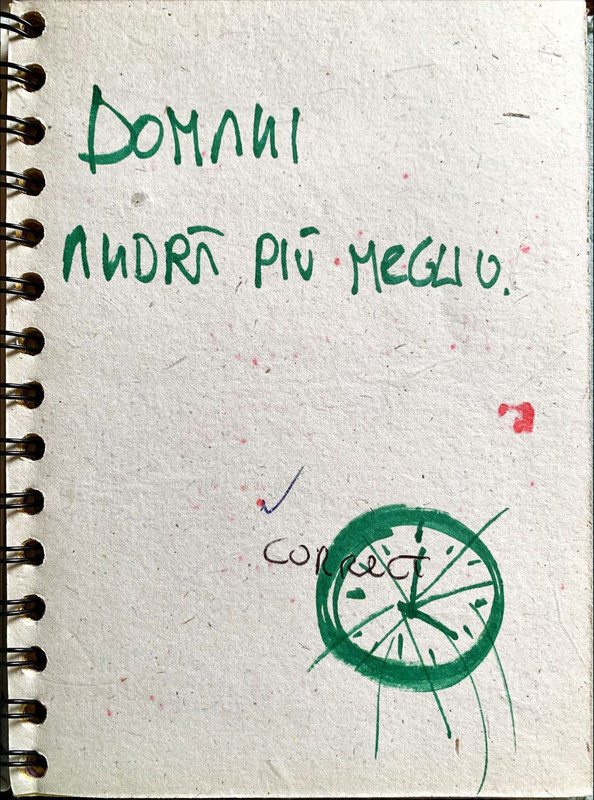 DOMANI
ANDRÀ PIÙ MEGLIO.
✓
CORRECT